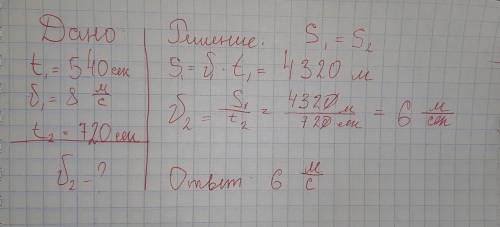 Дано
t₁ = 540 сек
υ₁ = 8 м/с
t₂ = 720 сек
υ₂ - ?
Решение. S₁ = S₂
S₁ = υ₁ · t₁ = 4320 м
υ₂ = S₁/t₂ = 4320 м/720 сек = 6 м/сек
Ответ 6 м/с